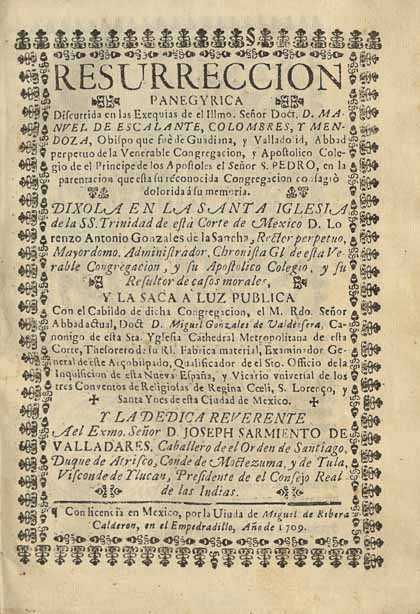 RESURRECCION
PANEGYRICA
Discurrida en las Exequias de el Illmo. Señor Doct. D. MA-
NVEL DE ESCALANTE, COLOMBRES, Y MEN-
DOZA, Obispo que fuè de Guadiana, y Valladolid, Abbad
perpetuo de la Venerable Congregacion, y Apostolico Cole-
gio de el Principe de los Apostoles el Señor S. PEDRO, en la
parentacion que esta su réconocida Congregacion consagiò
dolorida à su memoria.
DIXOLA EN LA SANTA IGLESIA
de la SS. Trinidad de esta Corte de Mexico D. Lo
renzo Antonio Gonzales de la Sancha, Recter perpetuo,
Mayordomo, Administrador, Chronista Gl de esta Ve
rable Congregacion, y su Apostolico Colegio, y su
Resultor de casos morales,
Y LA SACA A LUZ PUBLICA
Con el Cabildo de dicha Congregacion, el M. Rdo. Señor
Abbad actual, Doct D. Miguel Gonzales de Valdeosera, Ca-
nonigo de esta Sta. Yglesia Cathedral Metropolitana de esta
Corte, Thesorero de su Rl. Fabrica material, Examinador Ge-
neral de este Arçobispado, Qualificador de el Sto. Officio de la
Inquisicion de esta Nueva España, y Vicario vniversal de los
tres Conventos de Religiosas de Regina Cœli, S. Lorenço, y
Santa Ynes de esta Ciudad de Mexico.
Y LA DEDICA REVERENTE
A el Exmo. Señor D. JOSEPH SARMIENTO DE
VALLADARES, Caballero de el Orden de Santiago,
Duque de Atrisco, Conde de Moctezuma, y de Tula,
Visconde de Ylucan, Presidente de el Consejo Real
de las Indias.
¶ Con licencia en Mexico, por la Viuda de Miguel de Ribera
Calderon, en el Empedradillo, Año de 1709.